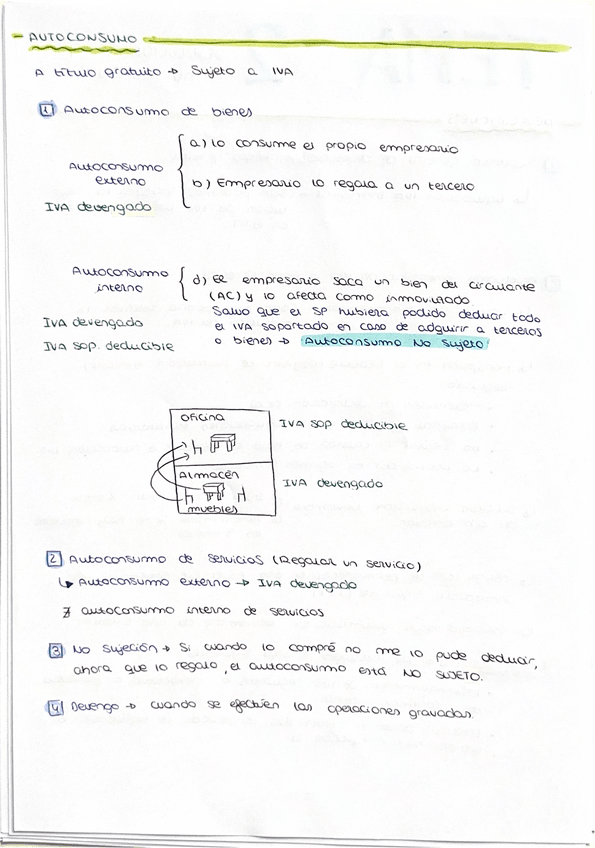 - AUTOCONSUMO
A título gratuito → Sujeto a IVA
1 Autoconsumo de bienes
a) lo consume el propio empresario
Autoconsumo
externo
b) Empresario lo regala a un tercero
IVA devengado
Autoconsumo
interno
d) El empresario saca un bien del circulante
(AC) y lo afecta como inmovilizado.
Salvo que el SP hubiera podido deducir todo
IVA devengado
el IVA soportado en caso de adquirir a terceros
IVA sop. deducible
o bienes → Autoconsumo No Sujeto
Oficina
IVA sop deducible
Almacén
IVA devengado
muebles
2 Autoconsumo de servicios (Regalar un servicio)
↳ Autoconsumo externo → IVA devengado
∄ autoconsumo interno de servicios
3 No sujeción → Si cuando lo compré no me lo pude deducir,
ahora que lo regalo, el autoconsumo está NO SUJETO.
4 Devengo → cuando se efectúen las operaciones gravadas.